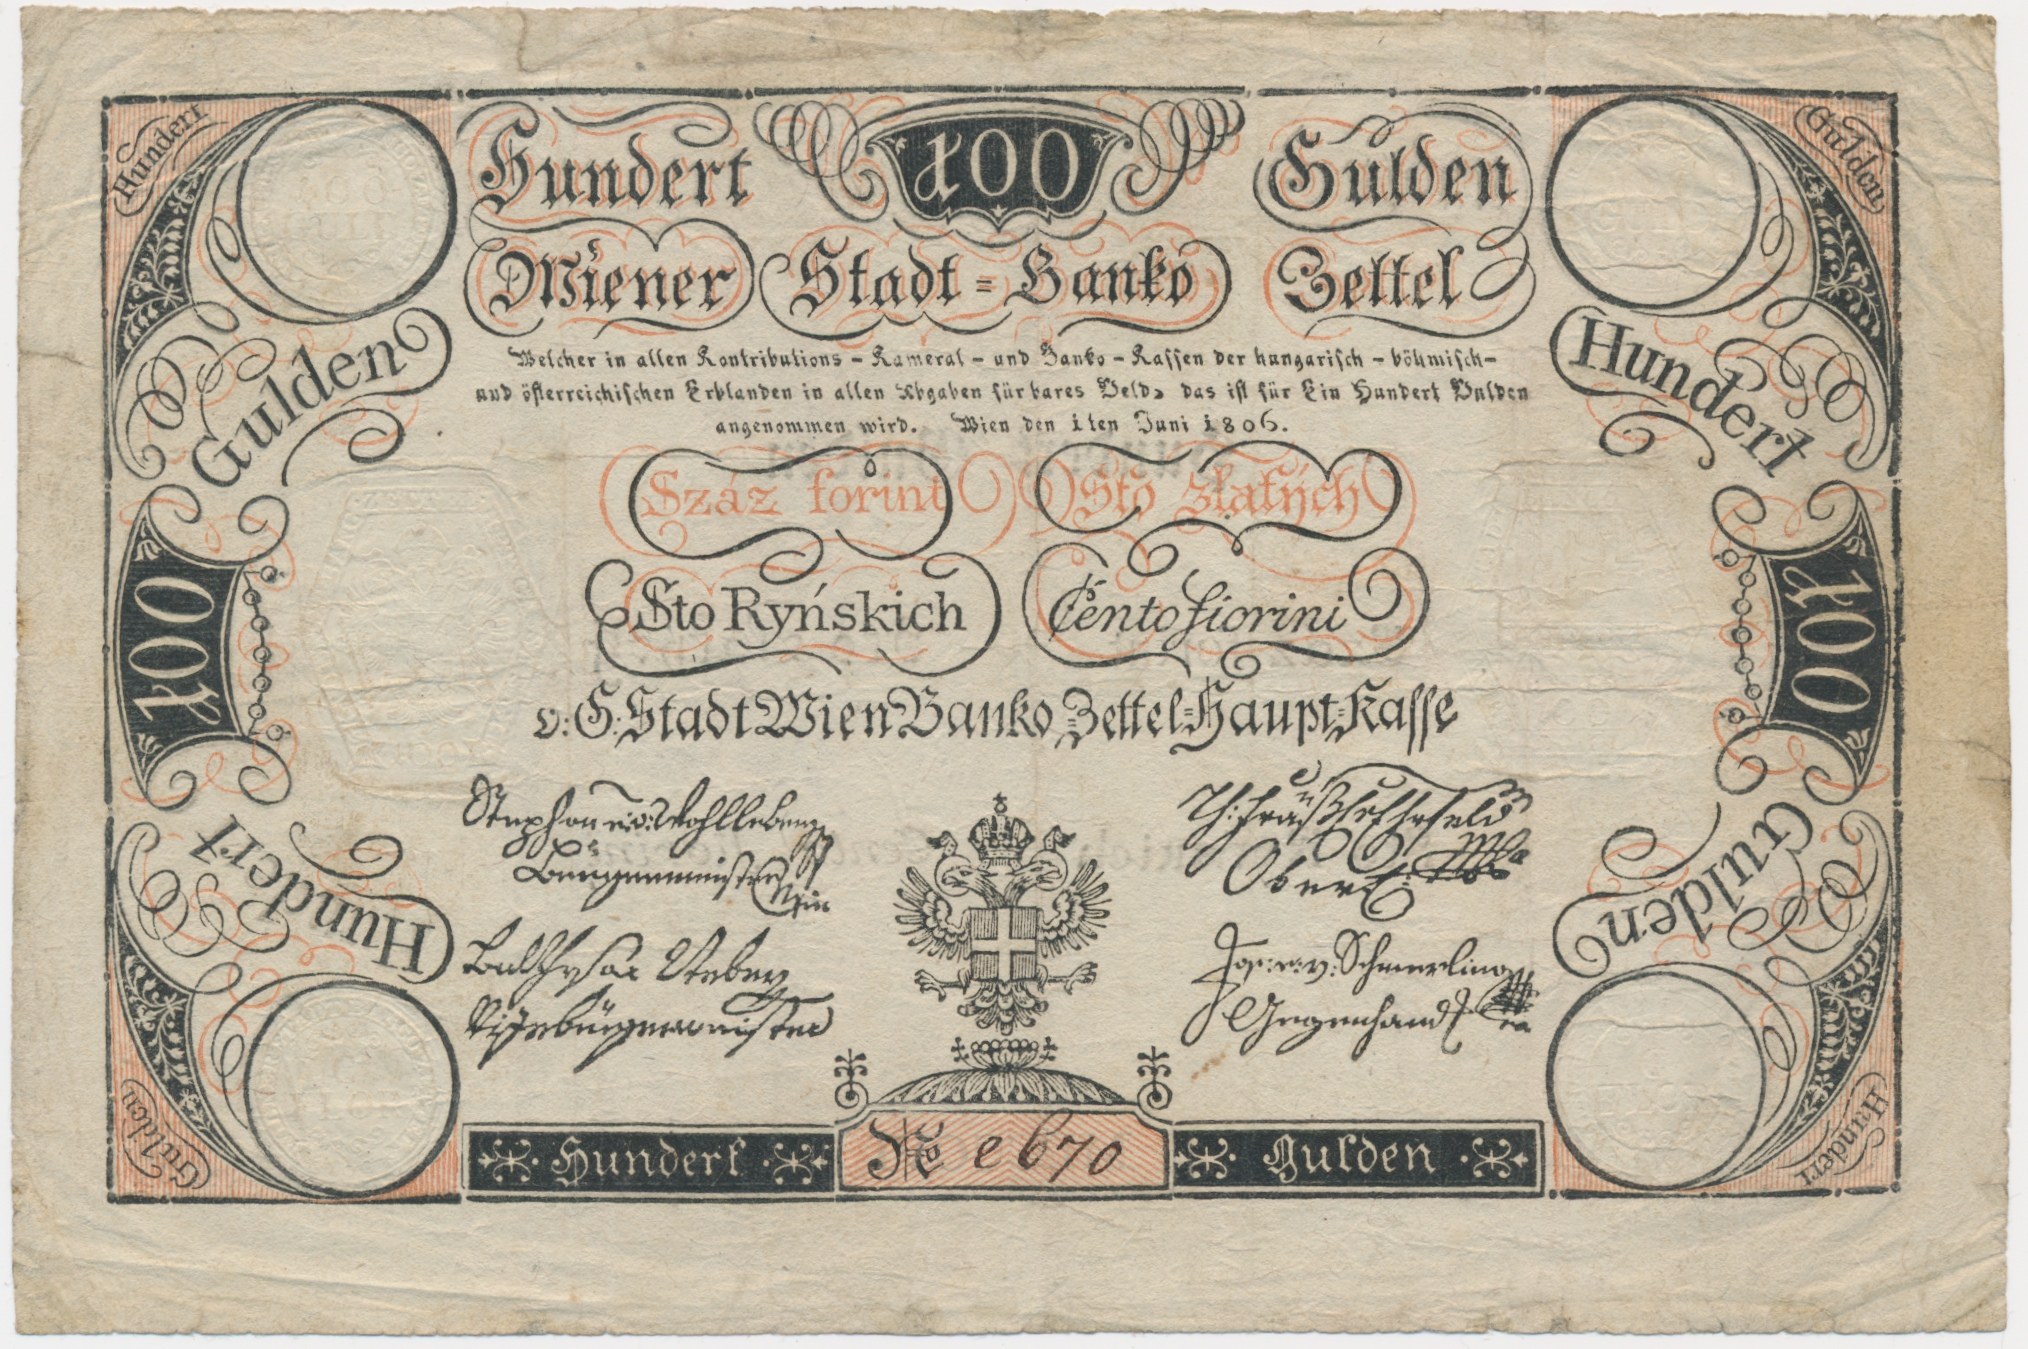 Hundert
Gulden
Hundert 100 Gulden
Wiener Stadt=Banko Zettel
Welcher in allen Kontributions - Kameral - und Banko - Kassen der hungarisch - böhmisch -
und österreichischen Erblanden in allen Abgaben für bares Geld, das ist für Ein Hundert Gulden
angenommen wird. Wien den 1ten Juni 1806.
Gulden
Hundert
Száz forint Sto zlatých
Sto Ryńskich Cento fiorini
100
100
v: G: Stadt Wien Banko=Zettel=Haupt=Kasse
Stephan e: v: Wohlleben
Burgermeister
Ober
Jos: e: v: Schmerling
Gegenhand
Vizebürgermeister
Hundert
Gulden
Gulden
Hundert
Hundert No e 670 Gulden